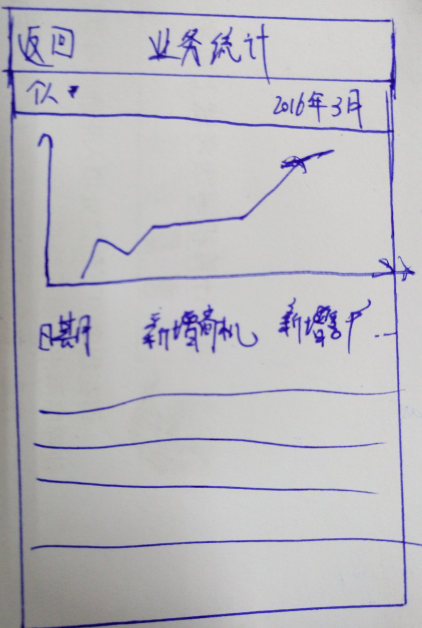 返回 业务统计
个人 2016年3月
日期 新增商机 新增客户 ...